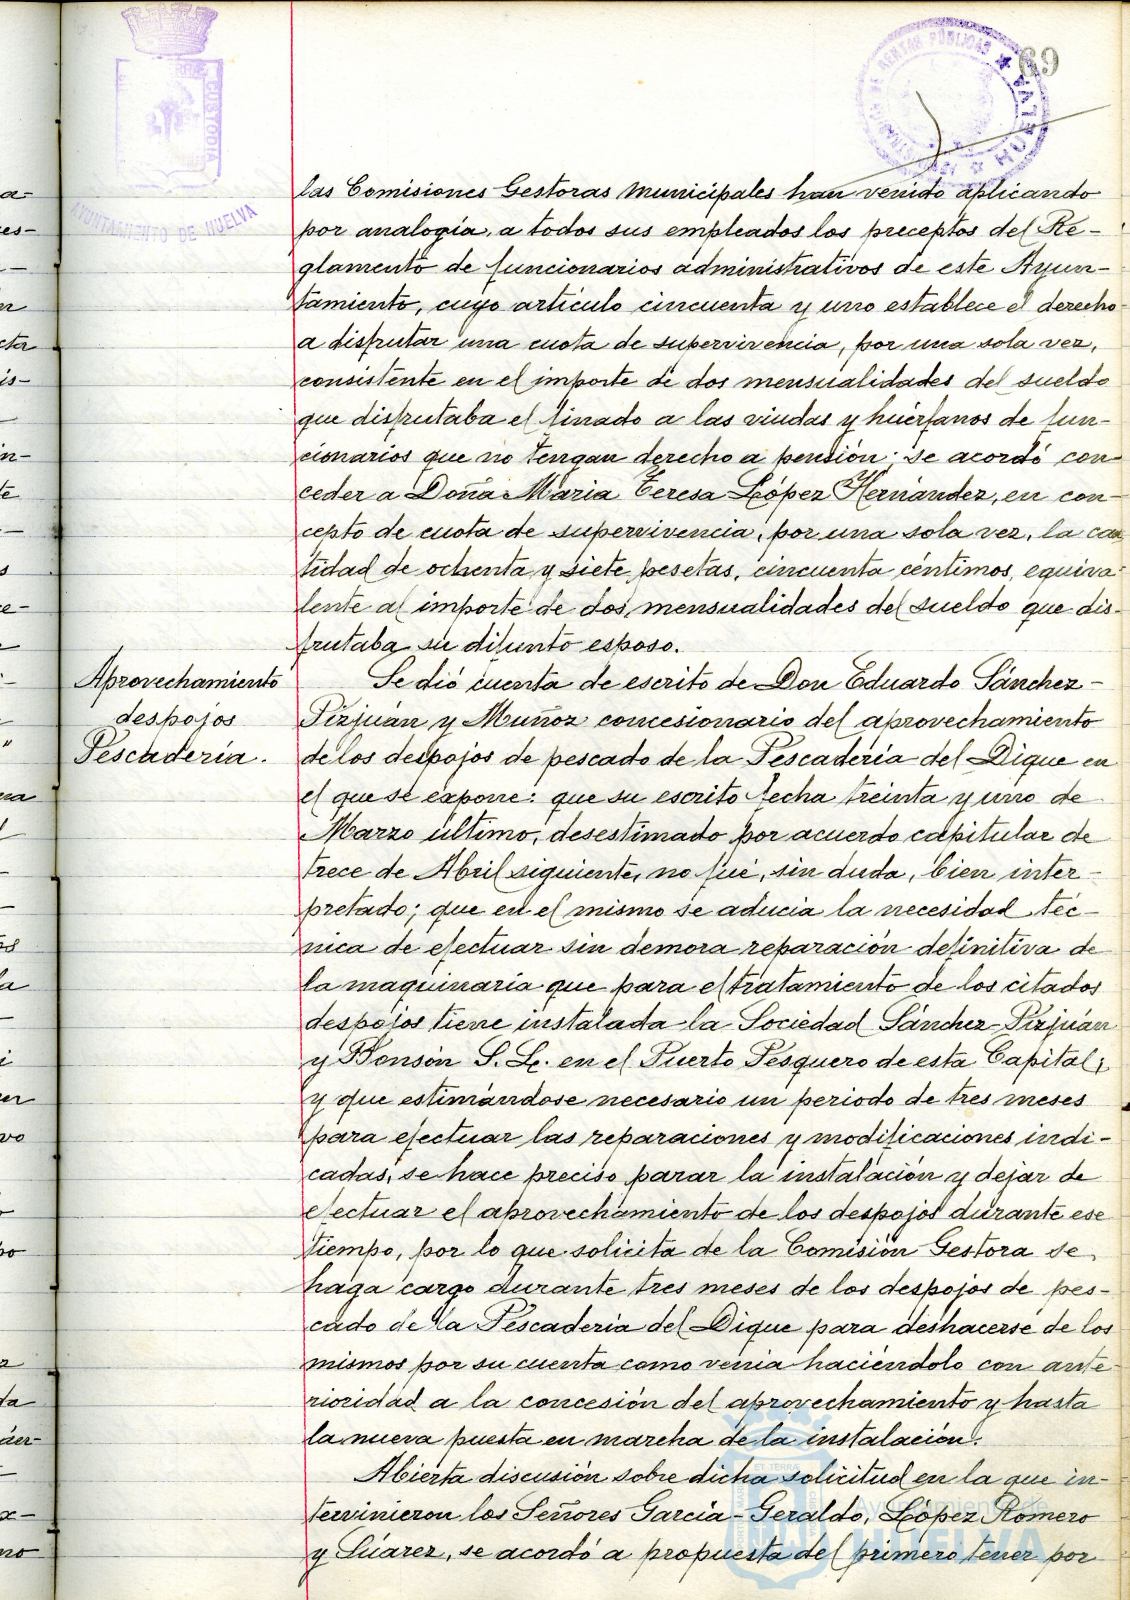 69
CUSTODIA
AYUNTAMIENTO DE HUELVA
RENTAS PÚBLICAS
HUELVA
las Comisiones Gestoras municipales han venido aplicando
por analogía, a todos sus empleados los preceptos del Re-
glamento de funcionarios administrativos de este Ayun-
tamiento, cuyo artículo cincuenta y uno establece el derecho
a disfrutar una cuota de supervivencia, por una sola vez,
consistente en el importe de dos mensualidades del sueldo
que disfrutaba el finado a las viudas y huérfanos de fun-
cionarios que no tengan derecho a pensión; se acordó con-
ceder a Doña Maria Teresa López Hernández, en con-
cepto de cuota de supervivencia, por una sola vez, la can
tidad de ochenta y siete pesetas, cincuenta céntimos, equiva-
lente al importe de dos mensualidades del sueldo que dis-
frutaba su difunto esposo.
Aprovechamiento
despojos
Pescadería.
Se dió cuenta de escrito de Don Eduardo Sánchez-
Pizjuán y Muñoz concesionario del aprovechamiento
de los despojos de pescado de la Pescadería del Dique en
el que se expone: que su escrito fecha treinta y uno de
Marzo último, desestimado por acuerdo capitular de
trece de Abril siguiente, no fué, sin duda, bien inter-
pretado; que en el mismo se aducia la necesidad téc-
nica de efectuar sin demora reparación definitiva de
la maquinaria que para el tratamiento de los citados
despojos tiene instalada la Sociedad Sánchez-Pizjuán
y Ponsón S. L. en el Puerto Pesquero de esta Capital;
y que estimándose necesario un periodo de tres meses
para efectuar las reparaciones y modificaciones indi-
cadas, se hace preciso parar la instalación y dejar de
efectuar el aprovechamiento de los despojos durante ese
tiempo, por lo que solicita de la Comisión Gestora se
haga cargo durante tres meses de los despojos de pes-
cado de la Pescadería del Dique para deshacerse de los
mismos por su cuenta como venía haciéndolo con ante-
rioridad a la concesión del aprovechamiento y hasta
la nueva puesta en marcha de la instalación.
Abierta discusión sobre dicha solicitud en la que in-
tervinieron los Señores García-Geraldo, López Romero
y Súarez, se acordó a propuesta del primero tener por
Ayuntamiento de
HUELVA